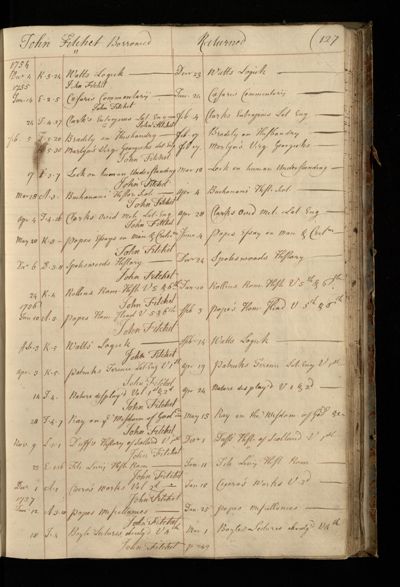 John Fitchet Borrowed Returned 127
1754
Decr 4 K-5-24 Watts Logick Decr 23 Watts Logick
1755 John Fitchet
Jan: 14 E-2-5 Cæsars Commentarij Jan: 21 Cæsars Commentarij
John Fitchet
21 Clarks Eutropius Lat Eng Feb. 4 Clarks Eutropius Lat Eng
John Fitchet
Feb. 5 Bradely on Husbandry Feb. 17 Bradely on Husbandry
Martyn's Virg Georgicks Martyn's Virg Georgicks
John Fitchet
17 Lock on human Understanding Mar 18 Lock on human Understanding
John Fitchet
Mar 18 Buchanani Histor Scot Apr 4 Buchanani Histr Scot
John Fitchet
Apr 4 Clarks Ovid Met. Lat Eng Apr 20 Clarks Ovid Met Lat Eng
John Fitchet
May 20 Popes Essays on Man & June 4 Popes Essay on Man &
John Fitchet
Spotswoods History Decr 24 Spotswoods History
John Fitchet
24 K-4 Rollins Rom Histr V 5 & 6th Jan 20 Rollins Rom Histr V 5th & 6th
1756 John Fitchet
Jan 20 Popes Hom Iliad V 5 & 6th Feb 3 Pope's Hom Iliad V 5th & 6th
John Fitchet
Feb 3 K-5 Watts Logick Feb 14 Watts Logick
John Fitchet
Apr. 3 K-5 Patricks Terence Lat Eng V 1st Apr 19 Patricks Terence Lat Eng V 1st
John Fitchet
14 F-4 Nature display'd Vol 1st & 2d Apr 24 Nature display'd V 1 & 2d
John Fitchet
28 F-4-7 Ray on ye Wisdom of God May 15 Ray on the Wisdom of God &c
John Fitchet
Nov. 9 Duffs History of Scotland V 1st Decr 1 Duffs Histr of Scotland V 1st
John Fitchet
22 Tit: Livij Histr Rom Jan 11 Tit: Livij Histr Rom
John Fitchet
Decr 1 Cicero's Works Vol 2d Jan 18 Cicero's Works V 2d
1757 John Fitchet
Jan 12 Popes Miscellanies Jan 25 Popes Miscellanies
John Fitchet
18 Boyle Lectures abridg'd V 4th Mar 1 Boyles Lectures abridg'd V 4th
John Fitchet